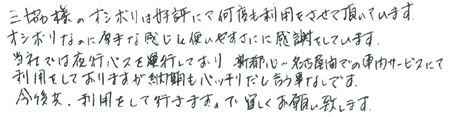 三協様のオシボリは好評にて何度も利用をさせて頂いています。
オシボリなのに厚手な感じと使いやすさに感謝をしています。
当社では夜行バスを運行しており 新都心〜名古屋間での車内サービスにて
利用をしておりますが納期もバッチリだし言う事なしです。
今後共、利用をして行きますので宜しくお願い致します。